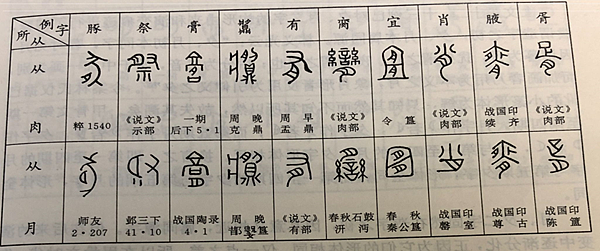 例 字 豚 祭 膏 有 脔 宜 肖 腋 胥
所 从
从
《说文》 一期 周 晚 周 早 《说文》 《说文》 战国印 《说文》
肉 粹 1540 示部 后下 5·1 克 鼎 盂 鼎 肉部 令 簋 肉部 续 齐 肉部
从
师友 邺三下 战国陶录 周 晚 《说文》 春秋石鼓 春 秋 战国印 战国印 战国印
月 2·207 41·10 4·1 有部 汧 沔 秦公簋 室 尊 古 陈